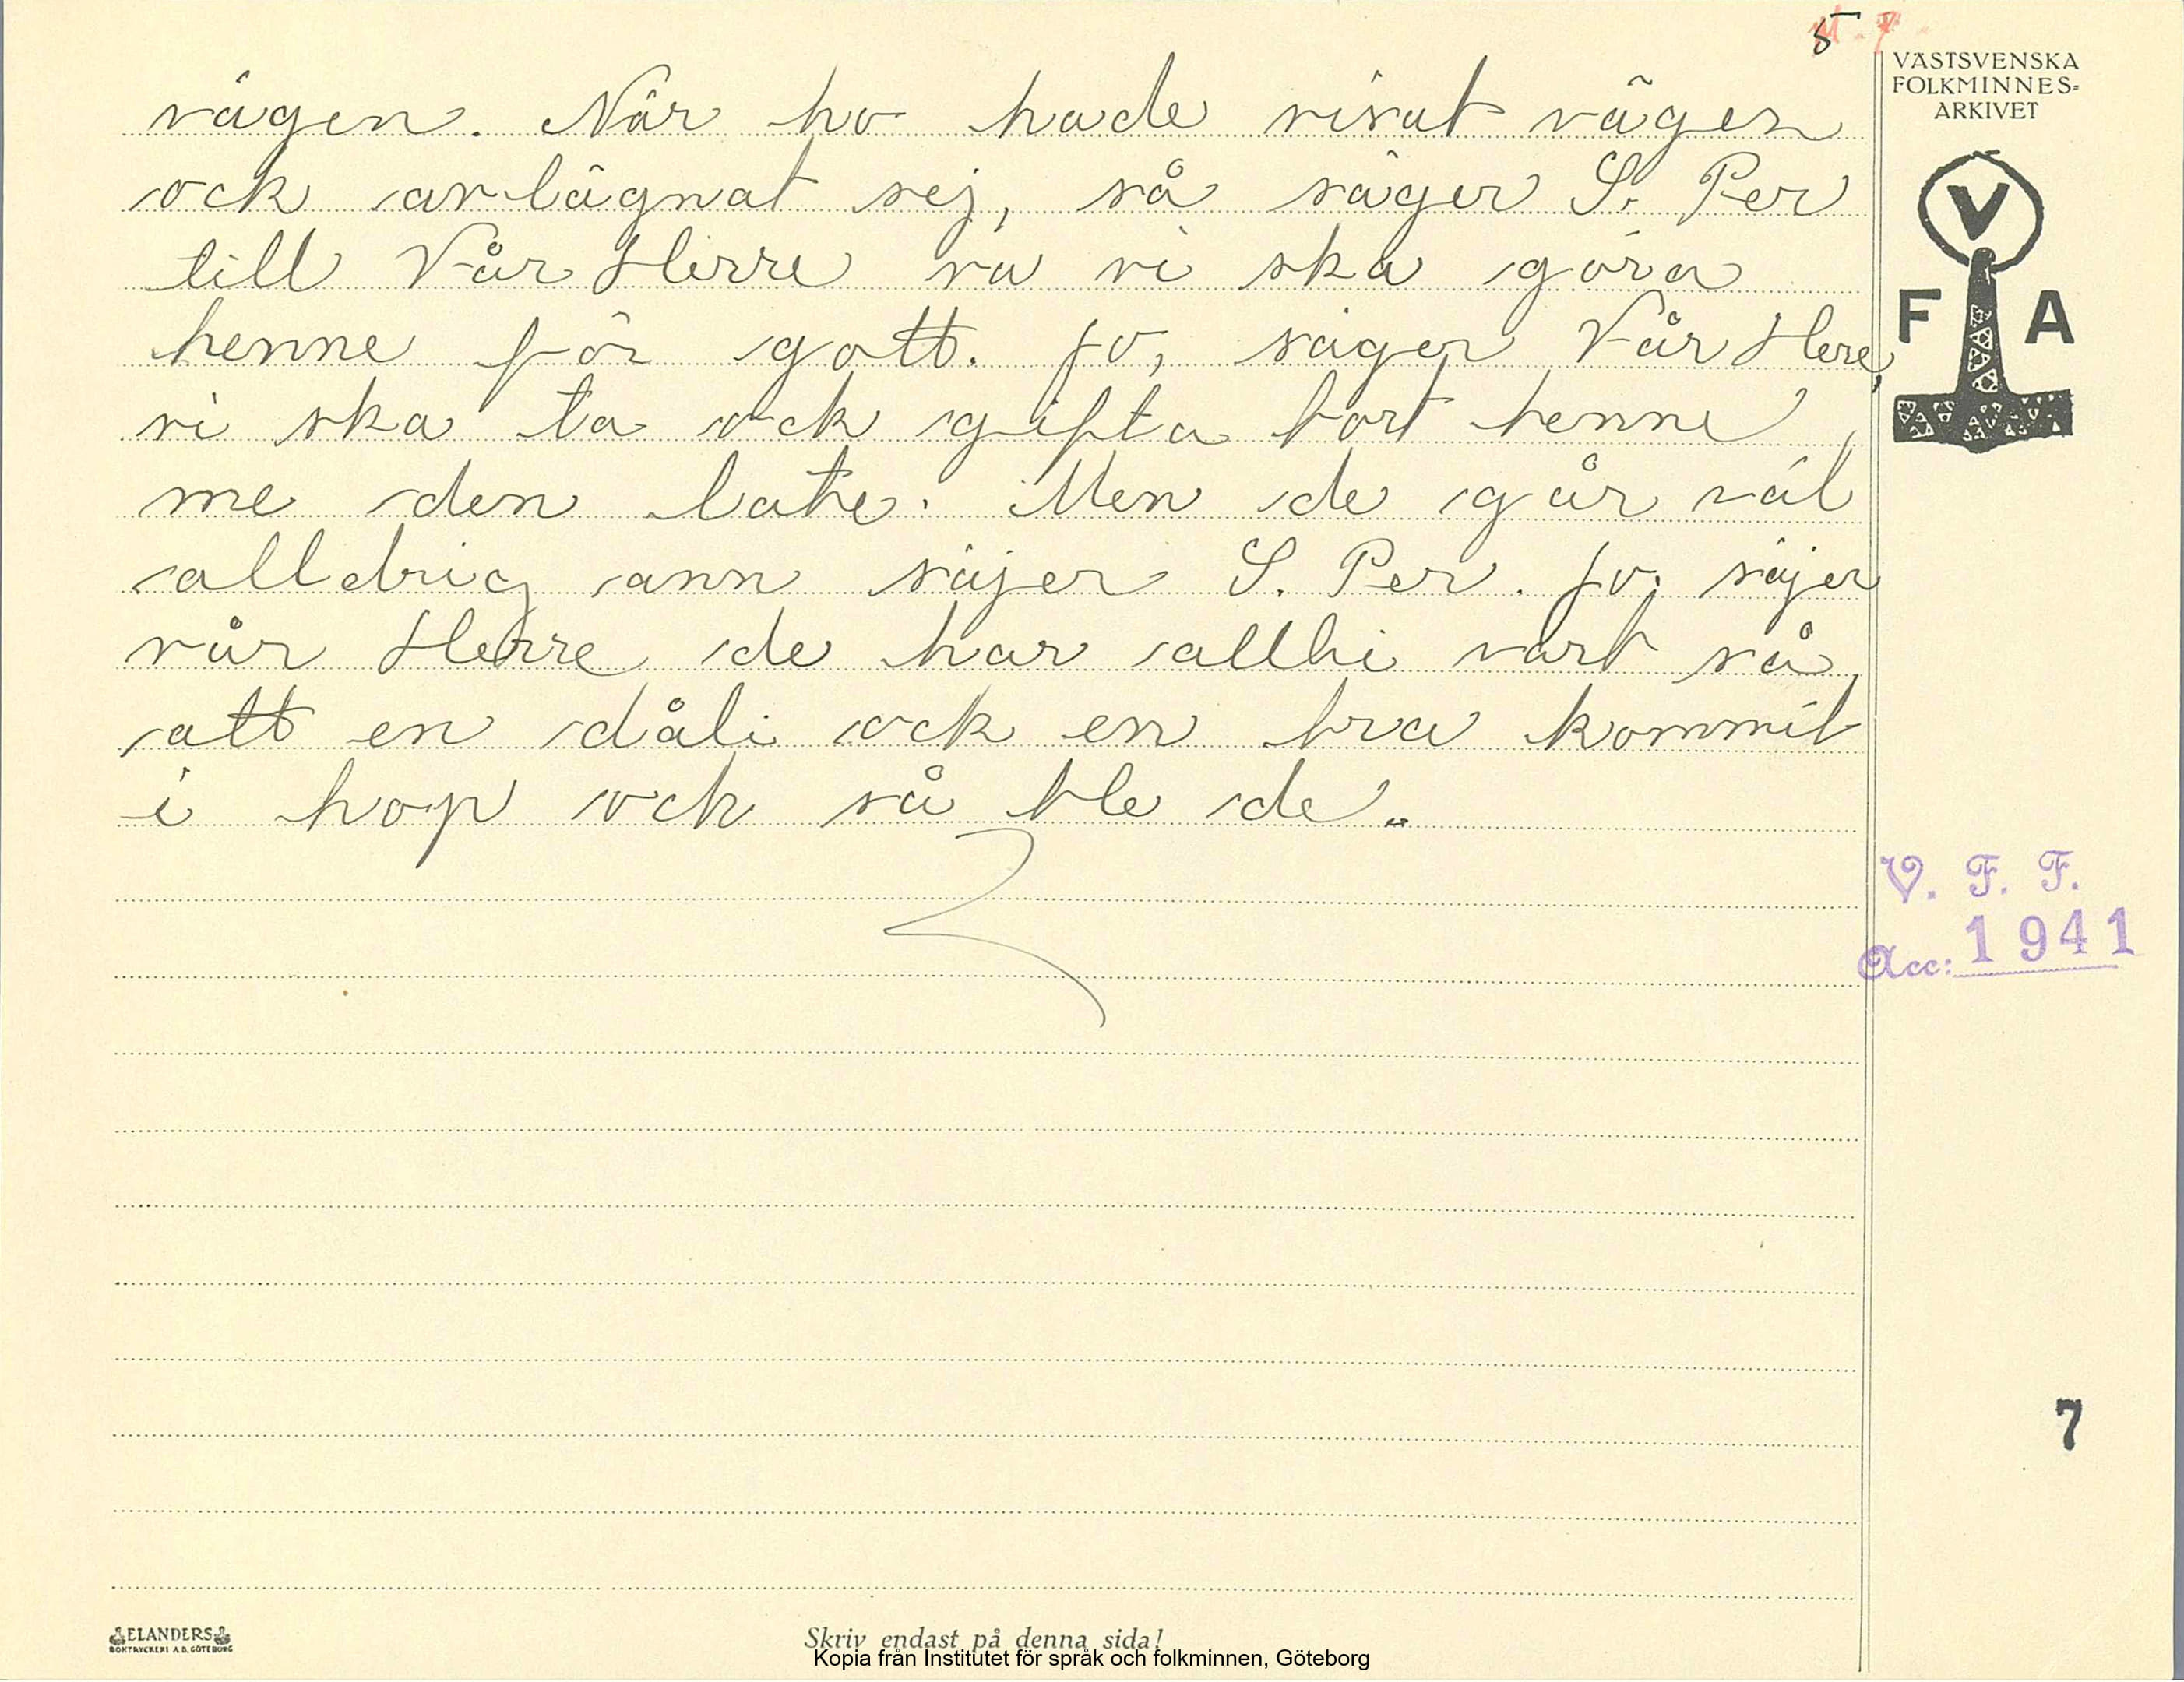 5
VÄSTSVENSKA
FOLKMINNES-
ARKIVET
V
F A
vägen. När ho hade visat vägen
ock avlägnat sej, så säger S. Per
till Vår Herre va vi ska göra
henne för gott. Jo, säger Vår Here,
vi ska ta ock gifta bort henne
me den late. Men de går väl
alldrig ann säjer S. Per. Jo, säjer
vår Herre de har allhi vart så,
att en dåli ock en bra kommit
i hop ock så ble de.
V. F. F.
Acc: 1941
7
ELANDERS
BOKTRYCKERI A.B. GÖTEBORG
Skriv endast på denna sida!
Kopia från Institutet för språk och folkminnen, Göteborg